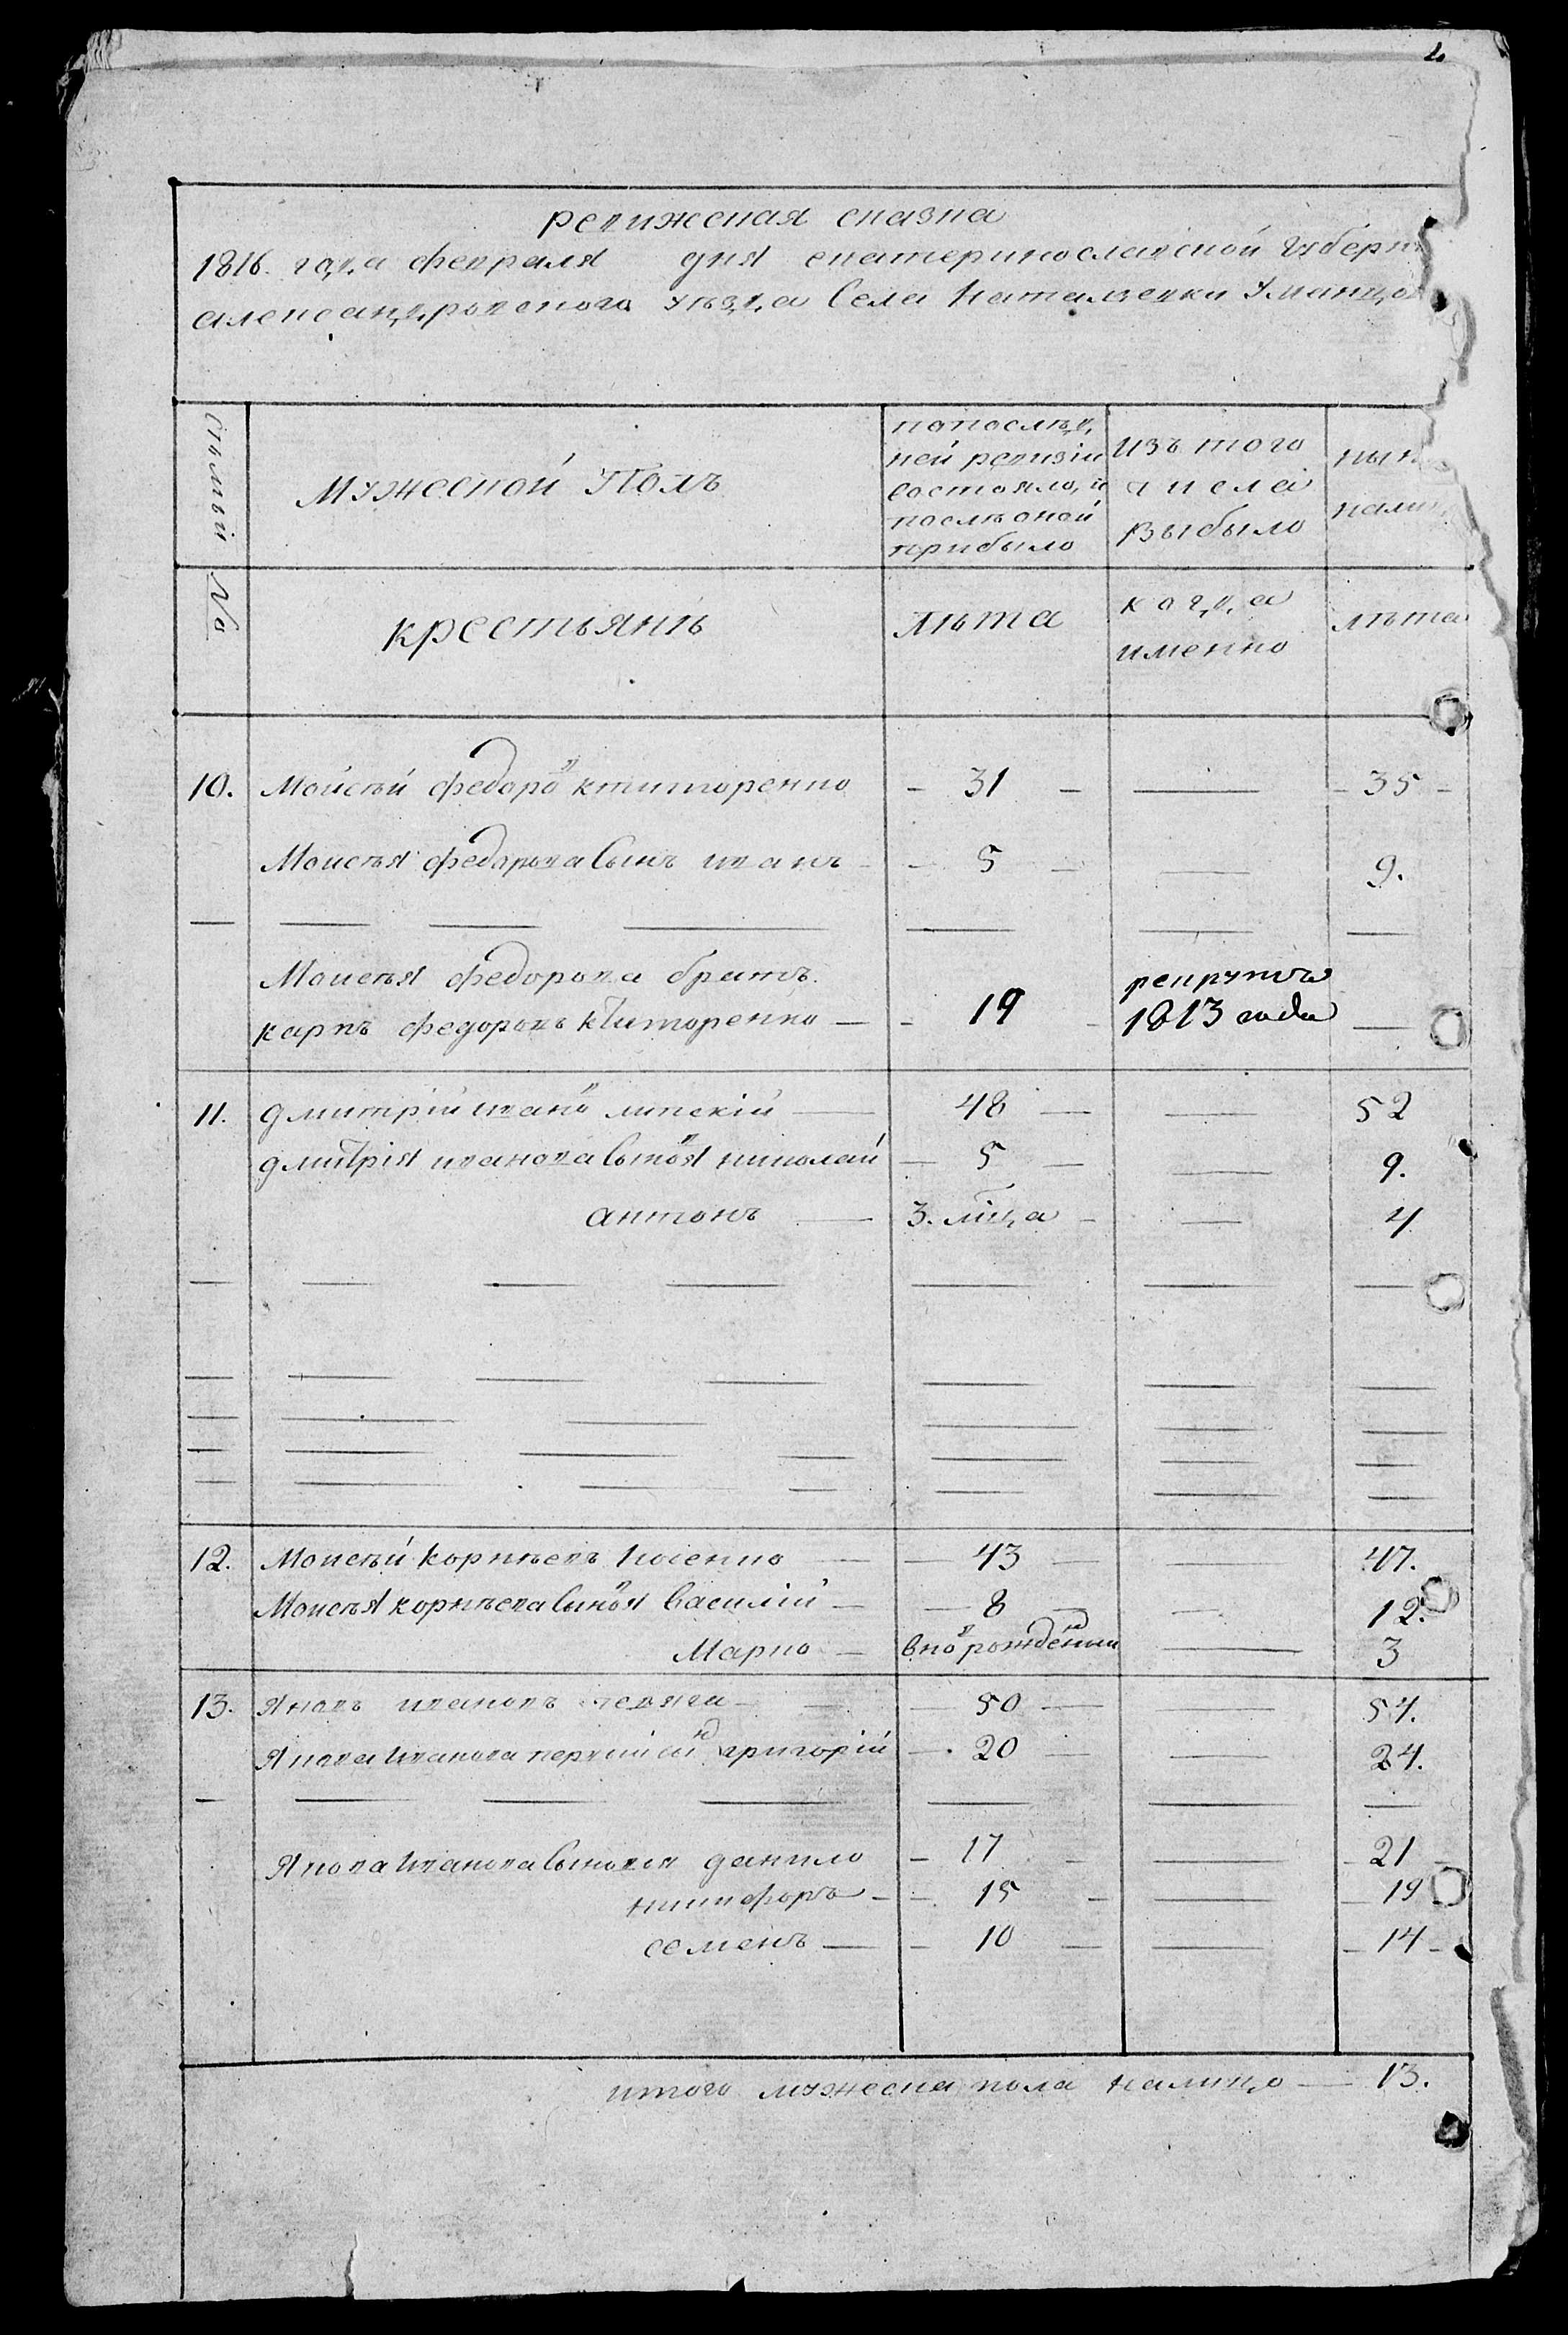 2
ревижская сказка
1816. года февраля дня екатеринославской Губерн
александровского уезда Села Натальевки Уманцов
Мужеской Полъ
попослѣд
ней ревизіи
состояло, и
послѣ оной
прибыло
изъ того
числа
выбыло
нын
налиц
№
крестьянѣ
лѣта
когда
именно
лѣта
10. Мойсей федоров ктиторенко - 31 - — - 35 -
Моисея федорова Сынъ иванъ - 5 - — 9.
Моисея федорова братъ
карпъ федоровъ ктиторенко — - 19 - рекрутъ 1813 года —
11. дмитрій иванов липскій — 48 — — 52
дмитрія иванова Сыновя николай — 5 — — 9.
антонъ — 3. мца - — 4
12. Моисей корнѣевъ Косенко — 43 — — 47.
Моисея корнѣева Сыновя Василій — 8 — — 12.
Марко — вновь рожденный — 3
13. Яковъ ивановъ — 50 — — 54.
Якова Иванова первый сын григорій — 20 — — 24.
Якова Иванова Сыновья данило - 17 - — - 21 -
никифоръ - 15 - — - 19
семенъ — - 10 — — - 14 -
итого мужеска пола налицо — 13.